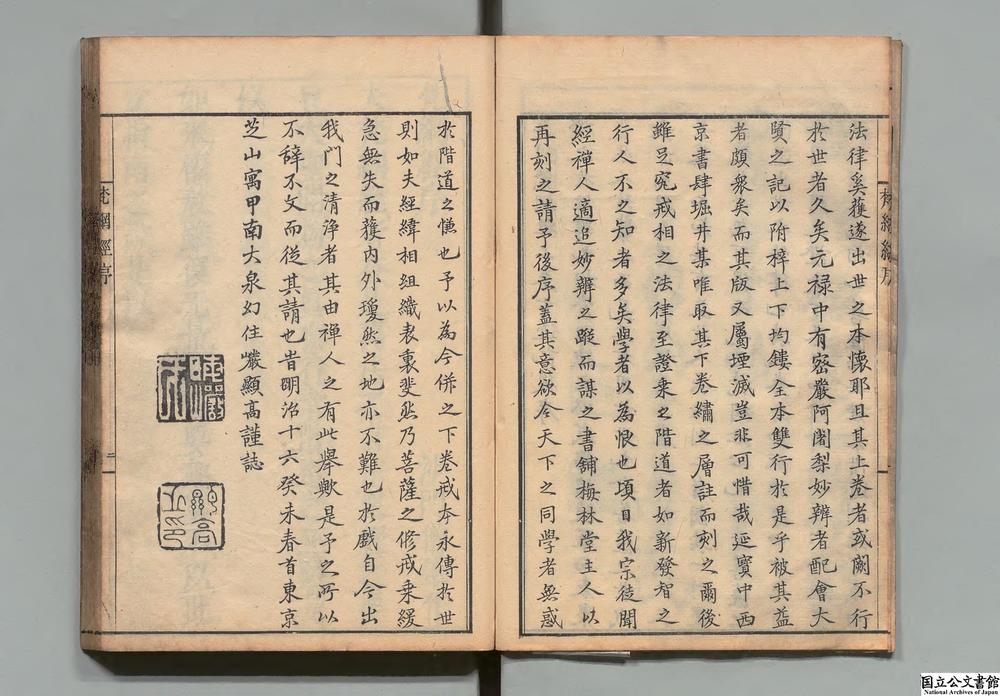 法律奚獲遂出世之本懷耶且其上卷者或闕不行
於世者久矣元禄中有密嚴阿闍梨妙辨者配會大
賢之記以附梓上下均鏤全本雙行於是乎被其益
者頗衆矣而其版又屬堙滅豈非可惜哉延寶中西
京書肆堀井某唯取其下卷繡之層註而刻之爾後
雖足究戒相之法律至證乗之階道者如新發智之
行人不之知者多矣學者以為恨也頃目我宗徒聞
經禅人適追妙辨之蹤而謀之書舗梅林堂主人以
再刻之請予後序蓋其意欲令天下之同學者無惑
於階道之慊也予以為今併之下卷戒本永傳於世
則如夫經緯相組織表裏斐然乃菩薩之修戒乗緩
急無失而獲内外瓊然之地亦不難也於戲自今出
我門之清浄者其由禅人之有此舉歟是予之所以
不辭不文而從其請也旹明治十六癸未春首東京
芝山寓甲南大泉幻住嚴顯高謹誌
梵網經序
二
顯高
國立公文書館
National Archives of Japan